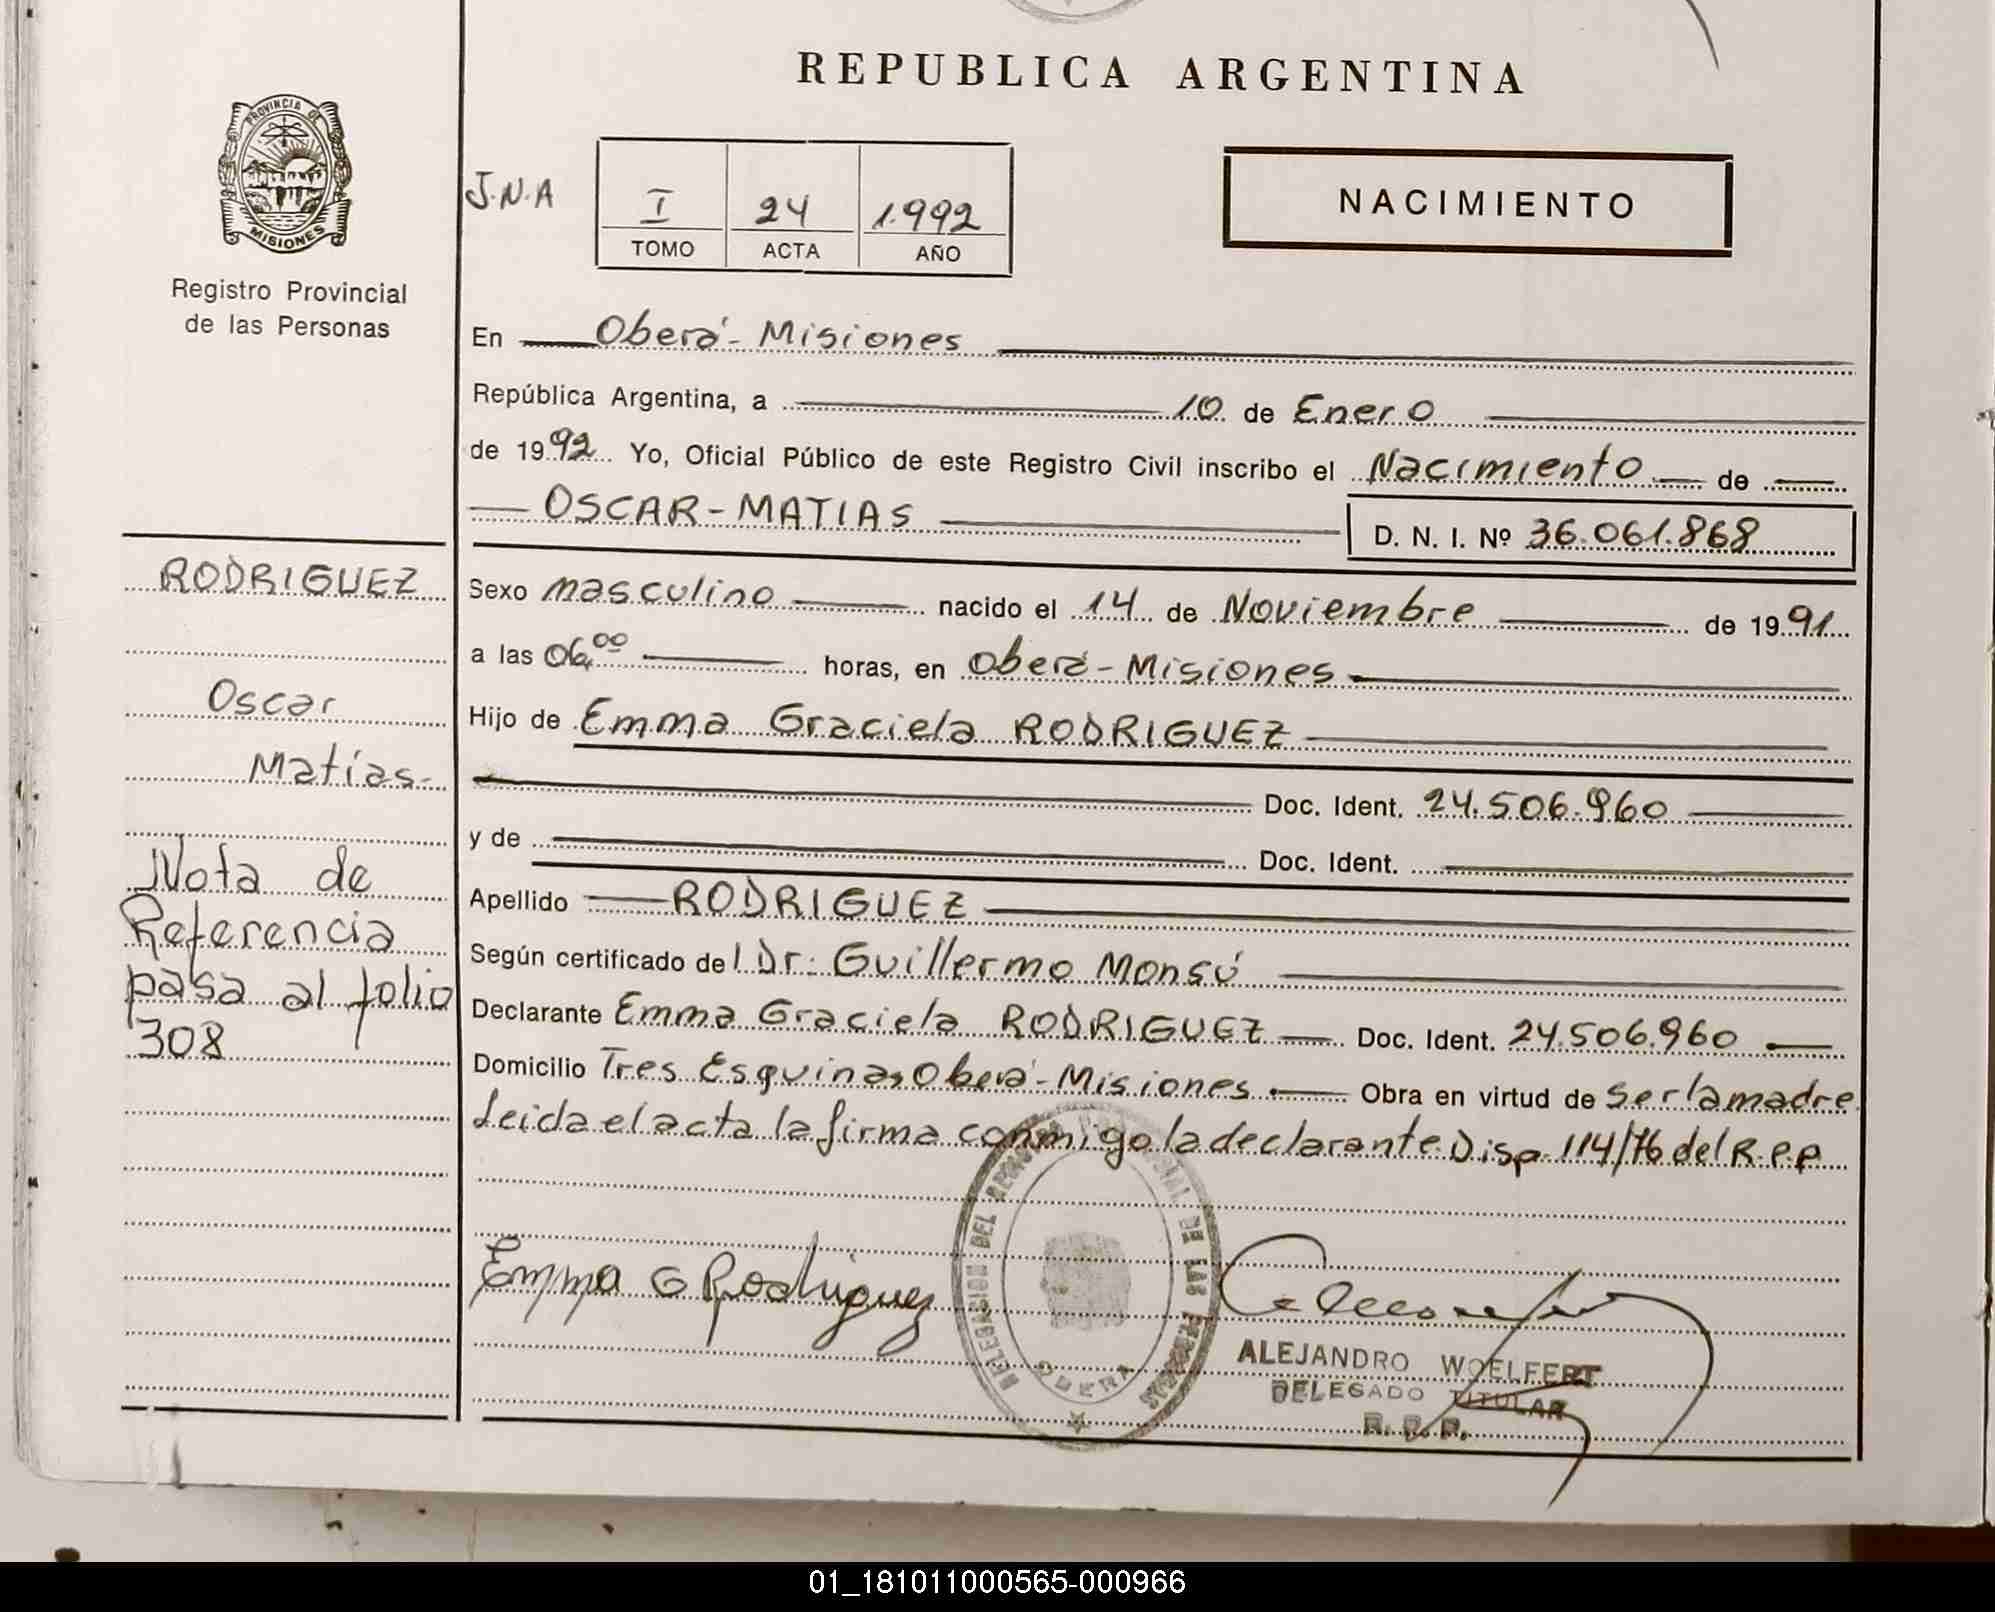 REPUBLICA ARGENTINA
PROVINCIA DE
MISIONES
Registro Provincial
de las Personas
J.N.A
I 24 1.992
TOMO ACTA AÑO
NACIMIENTO
En Oberá - Misiones
República Argentina, a 10 de Enero
de 1992 Yo, Oficial Público de este Registro Civil inscribo el Nacimiento de
OSCAR-MATIAS
D. N. I. Nº 36.061.868
RODRIGUEZ
Oscar
Matías.
Nota de
Referencia
pasa al folio
308
Sexo masculino nacido el 14 de Noviembre de 1991
a las 06,00 horas, en Oberá - Misiones
Hijo de Emma Graciela RODRIGUEZ
Doc. Ident. 24.506.960
y de Doc. Ident.
Apellido RODRIGUEZ
Según certificado del Dr: Guillermo Monsú
Declarante Emma Graciela RODRIGUEZ Doc. Ident. 24.506.960
Domicilio Tres Esquinas, Oberá - Misiones Obra en virtud de ser la madre
Leida el acta la firma conmigo la declarante. Disp. 114/76 del R.P.P
Emma G Rodriguez
DELEGACION DEL REGISTRO PROVINCIAL DE LAS PERSONAS
OBERA
ALEJANDRO WOELFERT
DELEGADO TITULAR
R. P. P.
01_181011000565-000966